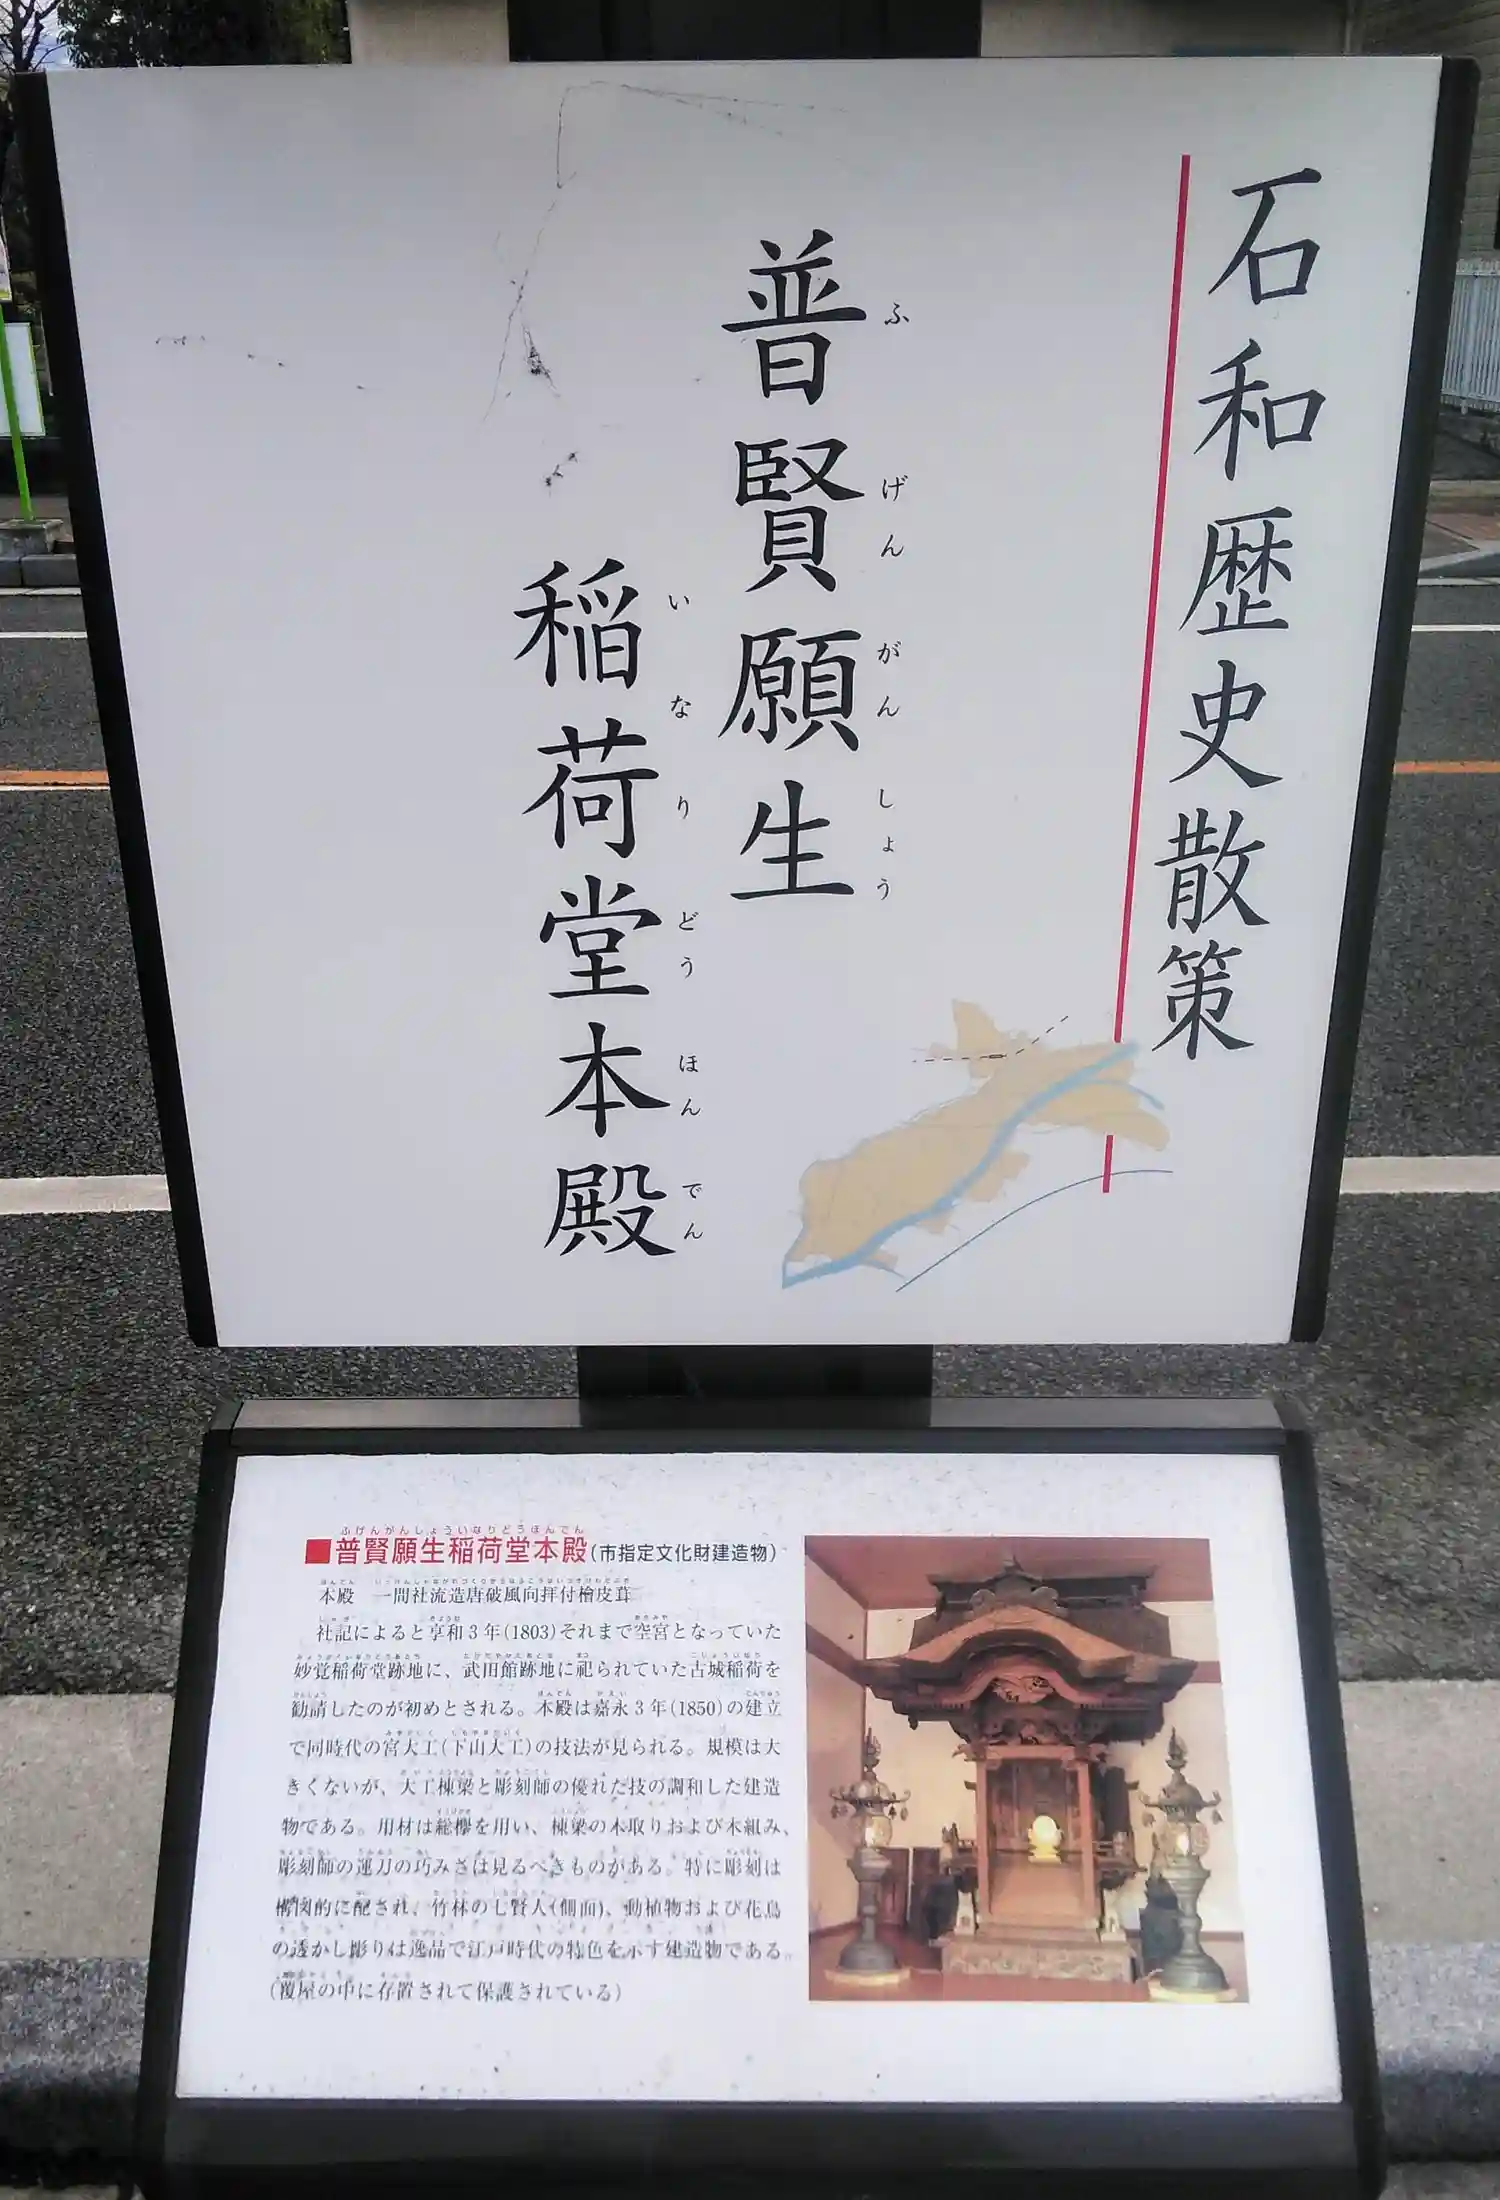 石和歴史散策
普賢願生
ふげんがんしょう
稲荷堂本殿
いなりどうほんでん
ふげんがんしょういなりどうほんでん
■普賢願生稲荷堂本殿(市指定文化財建造物)
本殿 一間社流造唐破風向拝付檜皮葺
社記によると享和3年(1803)それまで空宮となっていた
妙覚稲荷堂跡地に、武田館跡地に祀られていた古城稲荷を
勧請したのが初めとされる。本殿は嘉永3年(1850)の建立
で同時代の宮大工(下山大工)の技法が見られる。規模は大
きくないが、大工棟梁と彫刻師の優れた技の調和した建造
物である。用材は総欅を用い、棟梁の木取りおよび木組み、
彫刻師の運刀の巧みさは見るべきものがある。特に彫刻は
構図的に配され、竹林の七賢人(側面)、動植物および花鳥
の透かし彫りは逸品で江戸時代の特色を示す建造物である。
(覆屋の中に存置されて保護されている)